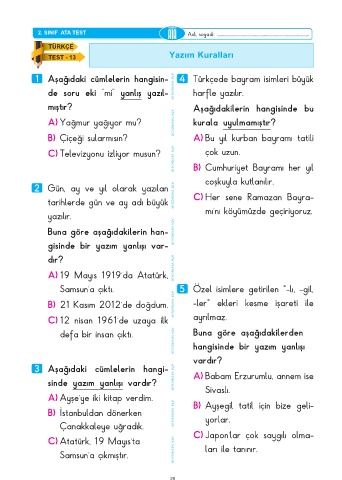 2. SINIF ATA TEST
Adı, soyadı:
TÜRKÇE
TEST - 13
Yazım Kuralları
1 Aşağıdaki cümlelerin hangisin-
de soru eki "mi" yanlış yazıl-
mıştır?
A) Yağmur yağıyor mu?
B) Çiçeği sularmısın?
C) Televizyonu izliyor musun?
2 Gün, ay ve yıl olarak yazılan
tarihlerde gün ve ay adı büyük
yazılır.
Buna göre aşağıdakilerin han-
gisinde bir yazım yanlışı var-
dır?
A) 19 Mayıs 1919'da Atatürk,
Samsun'a çıktı.
B) 21 Kasım 2012'de doğdum.
C) 12 nisan 1961'de uzaya ilk
defa bir insan çıktı.
3 Aşağıdaki cümlelerin hangi-
sinde yazım yanlışı vardır?
A) Ayşe'ye iki kitap verdim.
B) İstanbuldan dönerken
Çanakkaleye uğradık.
C) Atatürk, 19 Mayıs'ta
Samsun'a çıkmıştır.
4 Türkçede bayram isimleri büyük
harfle yazılır.
Aşağıdakilerin hangisinde bu
kurala uyulmamıştır?
A) Bu yıl kurban bayramı tatili
çok uzun.
B) Cumhuriyet Bayramı her yıl
coşkuyla kutlanılır.
C) Her sene Ramazan Bayra-
mı'nı köyümüzde geçiriyoruz.
5 Özel isimlere getirilen "-lı, -gil,
-ler" ekleri kesme işareti ile
ayrılmaz.
Buna göre aşağıdakilerden
hangisinde bir yazım yanlışı
vardır?
A) Babam Erzurumlu, annem ise
Sivaslı.
B) Ayşegil tatil için bize geli-
yorlar.
C) Japon'lar çok saygılı olma-
ları ile tanınır.